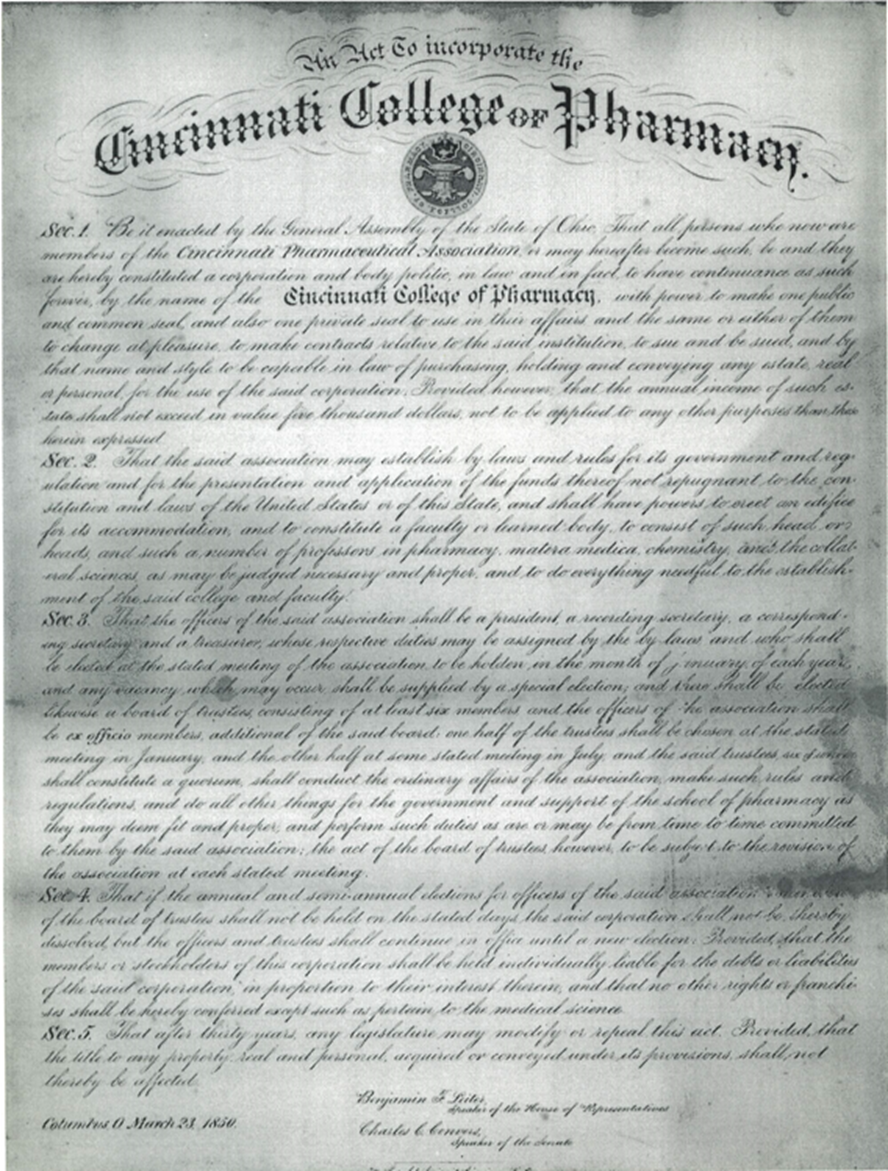 An Act To incorporate the
Cincinnati College OF Pharmacy.
Sec. 1. Be it enacted by the General Assembly of the State of Ohio, That all persons who now are
members of the Cincinnati Pharmaceutical Association, or may hereafter become such, be and they
are hereby constituted a corporation and body politic, in law and in fact, to have continuance as such
forever, by the name of the Cincinnati College of Pharmacy, with power to make one public
and common seal, and also one private seal to use in their affairs and the same or either of them
to change at pleasure, to make contracts relative to the said institution, to sue and be sued, and by
that name and style to be capable in law of purchasing, holding and conveying any estate, real
or personal, for the use of the said corporation. Provided however, that the annual income of such es-
tate shall not exceed in value five thousand dollars, not to be applied to any other purposes than those
herein expressed.
Sec. 2. That the said association may establish by laws and rules for its government and reg-
ulation and for the presentation and application of the funds thereof not repugnant to the con-
stitution and laws of the United States or of this State, and shall have powers to erect an edifice
for its accommodation, and to constitute a faculty or learned body, to consist of such head or
heads, and such a number of professors in pharmacy, matera medica, chemistry, and the collat-
eral sciences, as may be judged necessary and proper, and to do everything needful to the establish-
ment of the said college and faculty.
Sec. 3. That the officers of the said association shall be a president, a recording secretary, a correspond-
ing secretary and a treasurer, whose respective duties may be assigned by the by-laws and who shall
be elected at the stated meeting of the association, to be holden, in the month of January, of each year,
and any vacancy which may occur shall be supplied by a special election; and there shall be elected
likewise a board of trustees, consisting of at least six members and the officers of the association shall
be ex officio members, additional of the said board, one half of the trustees shall be chosen at the stated
meeting in January, and the other half at some stated meeting in July, and the said trustees, six of whom
shall constitute a quorum, shall conduct the ordinary affairs of the association, make such rules and
regulations, and do all other things for the government and support of the school of pharmacy as
they may deem fit and proper, and perform such duties as are or may be from time to time committed
to them by the said association; the act of the board of trustees, however, to be subject to the revision of
the association at each stated meeting.
Sec. 4. That if the annual and semi-annual elections for officers of the said association
of the board of trustees shall not be held on the stated days, the said corporation shall not be thereby
dissolved, but the officers and trustees shall continue in office until a new election. Provided, that the
members or stockholders of this corporation shall be held individually liable for the debts or liabilities
of the said corporation, in proportion to their interest therein, and that no other rights or franchi-
ses shall be hereby conferred except such as pertain to the medical science.
Sec. 5. That after thirty years, any legislature may modify or repeal this act. Provided, that
the title to any property, real and personal, acquired or conveyed under its provisions, shall not
thereby be affected.
Benjamin F. Leiter,
Speaker of the House of Representatives
Columbus, O. March 23, 1850.
Charles C. Convers,
Speaker of the Senate